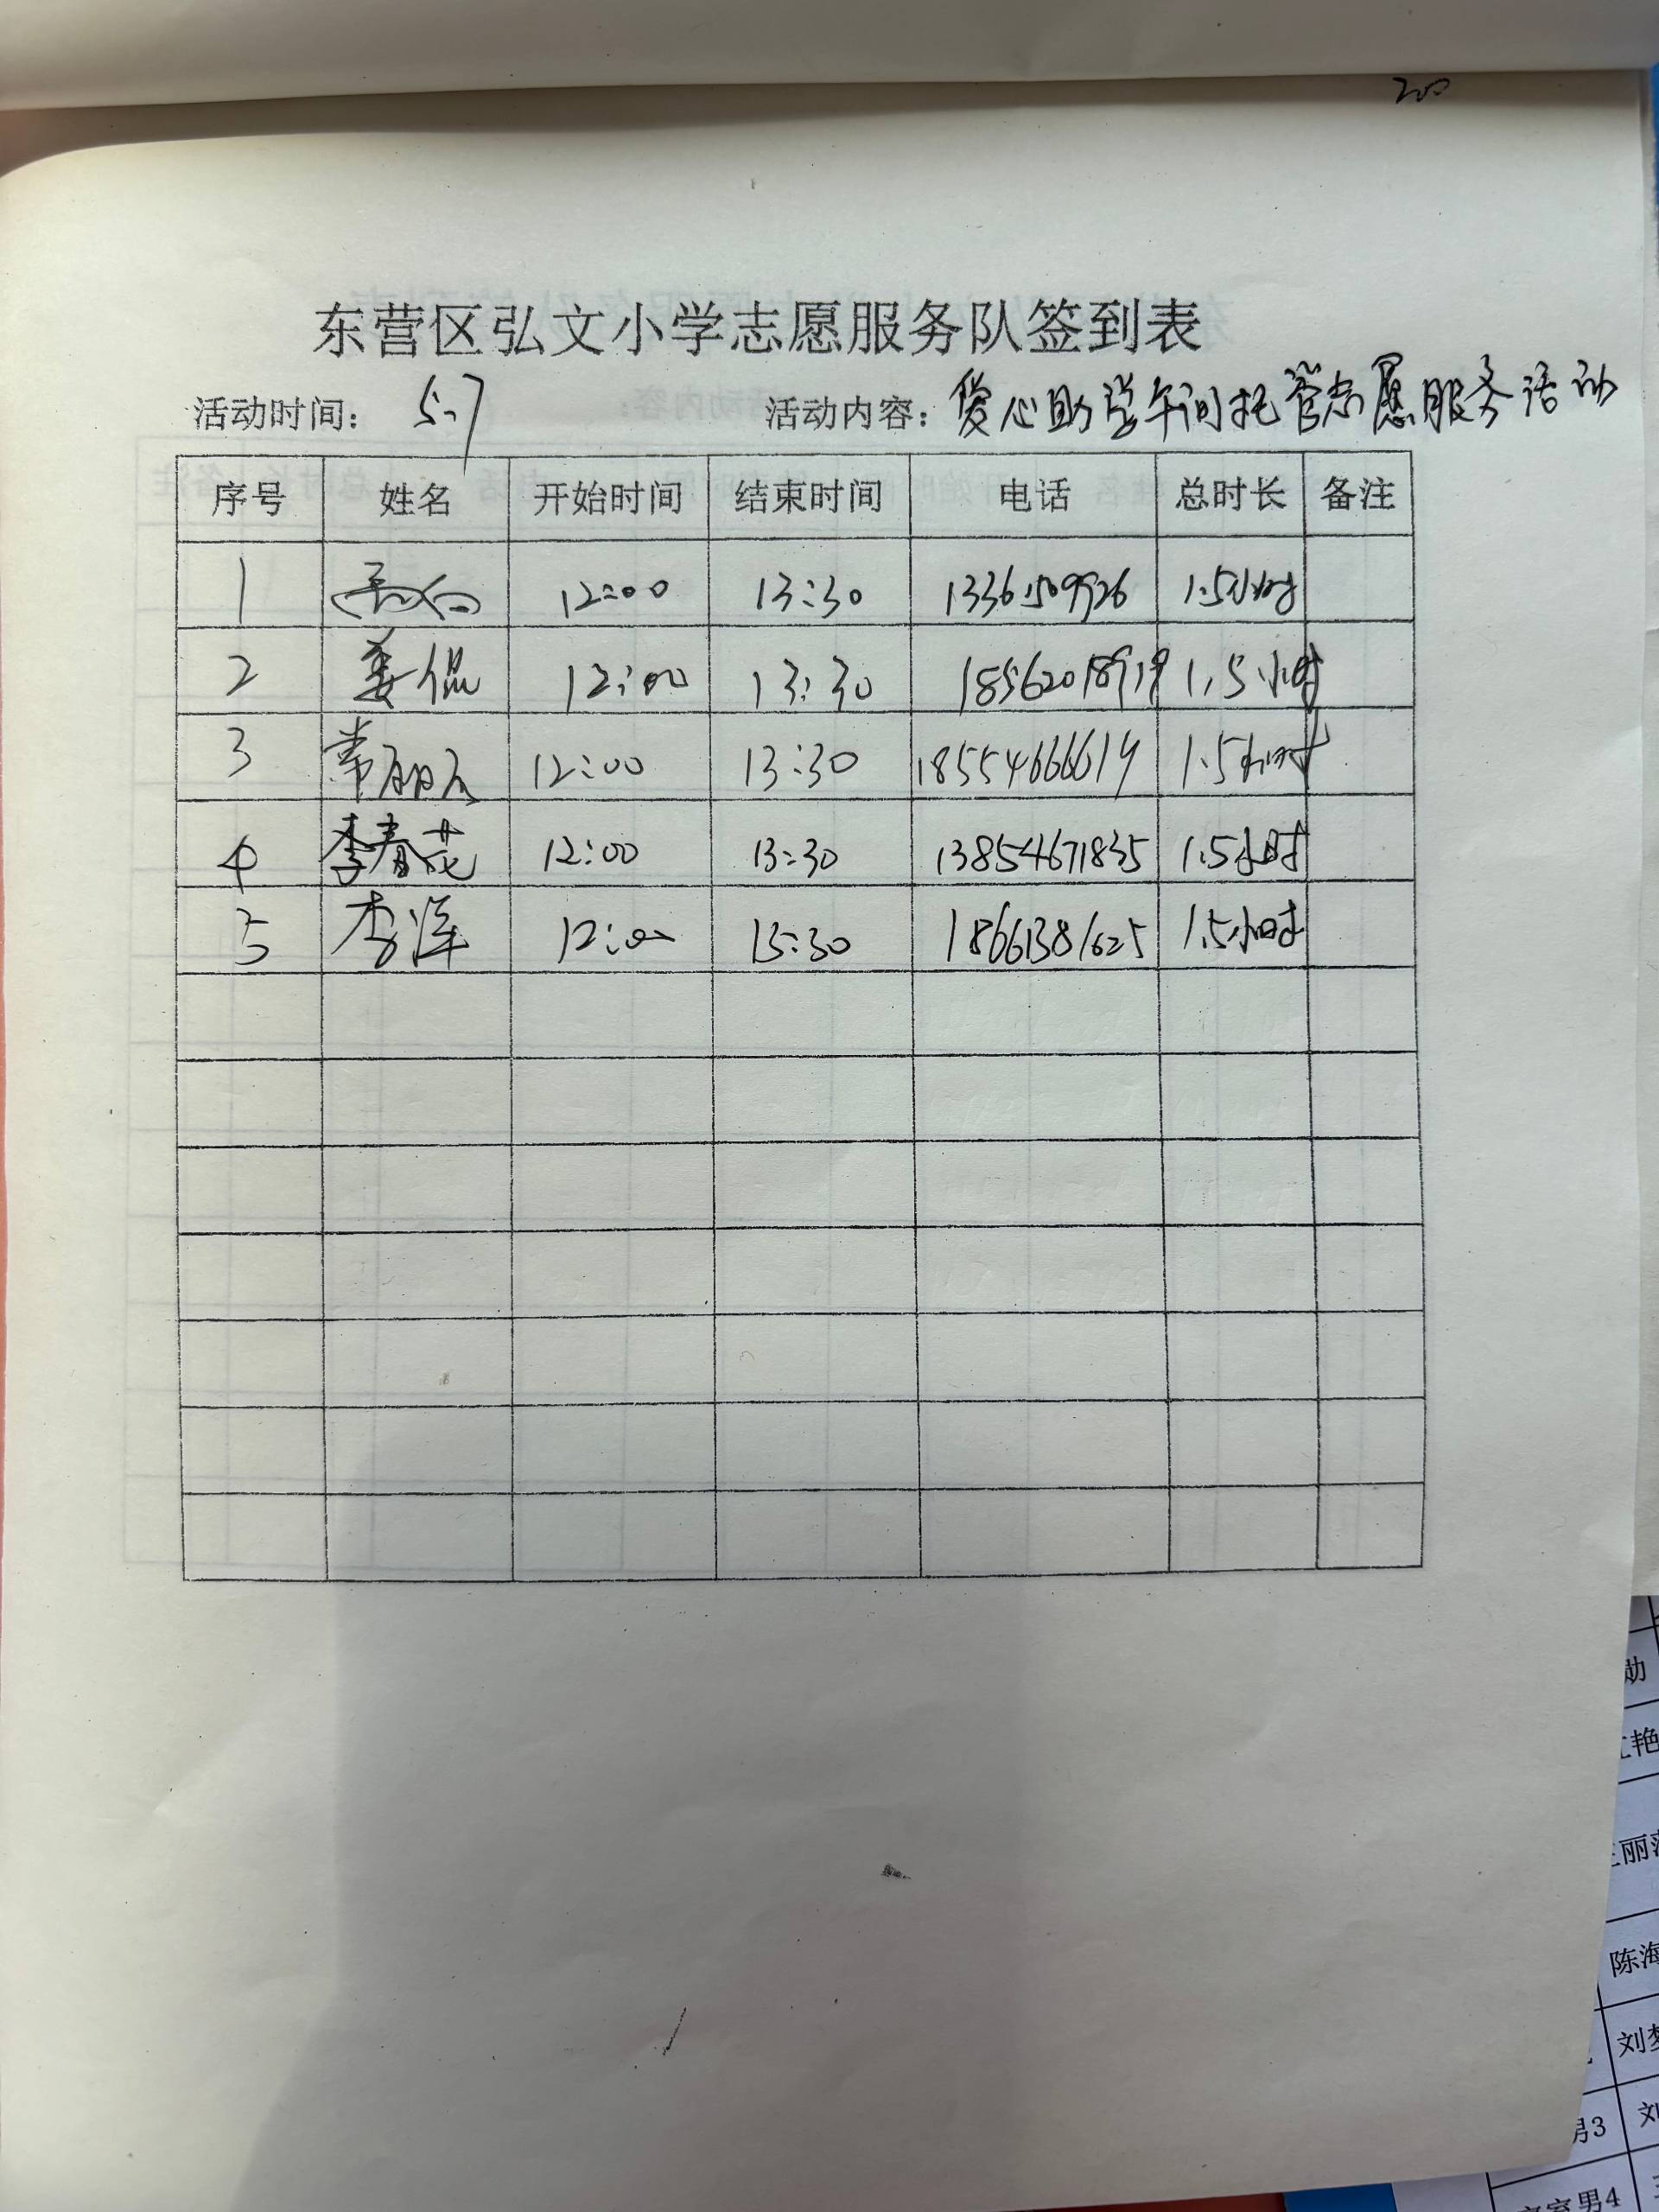 200
东营区弘文小学志愿服务队签到表
活动时间： 5.7 活动内容：爱心助学午间托管志愿服务活动
序号 姓名 开始时间 结束时间 电话 总时长 备注
1 12:00 13:30 13361509926 1.5小时
2 姜侃 12:00 13:30 18562018919 1.5小时
3 常 12:00 13:30 18554666619 1.5小时
4 李春花 12:00 13:30 13854671835 1.5小时
5 李洋 12:00 13:30 18661381625 1.5小时
勋
艳
丽
陈海
刘梦
男3 刘
男4